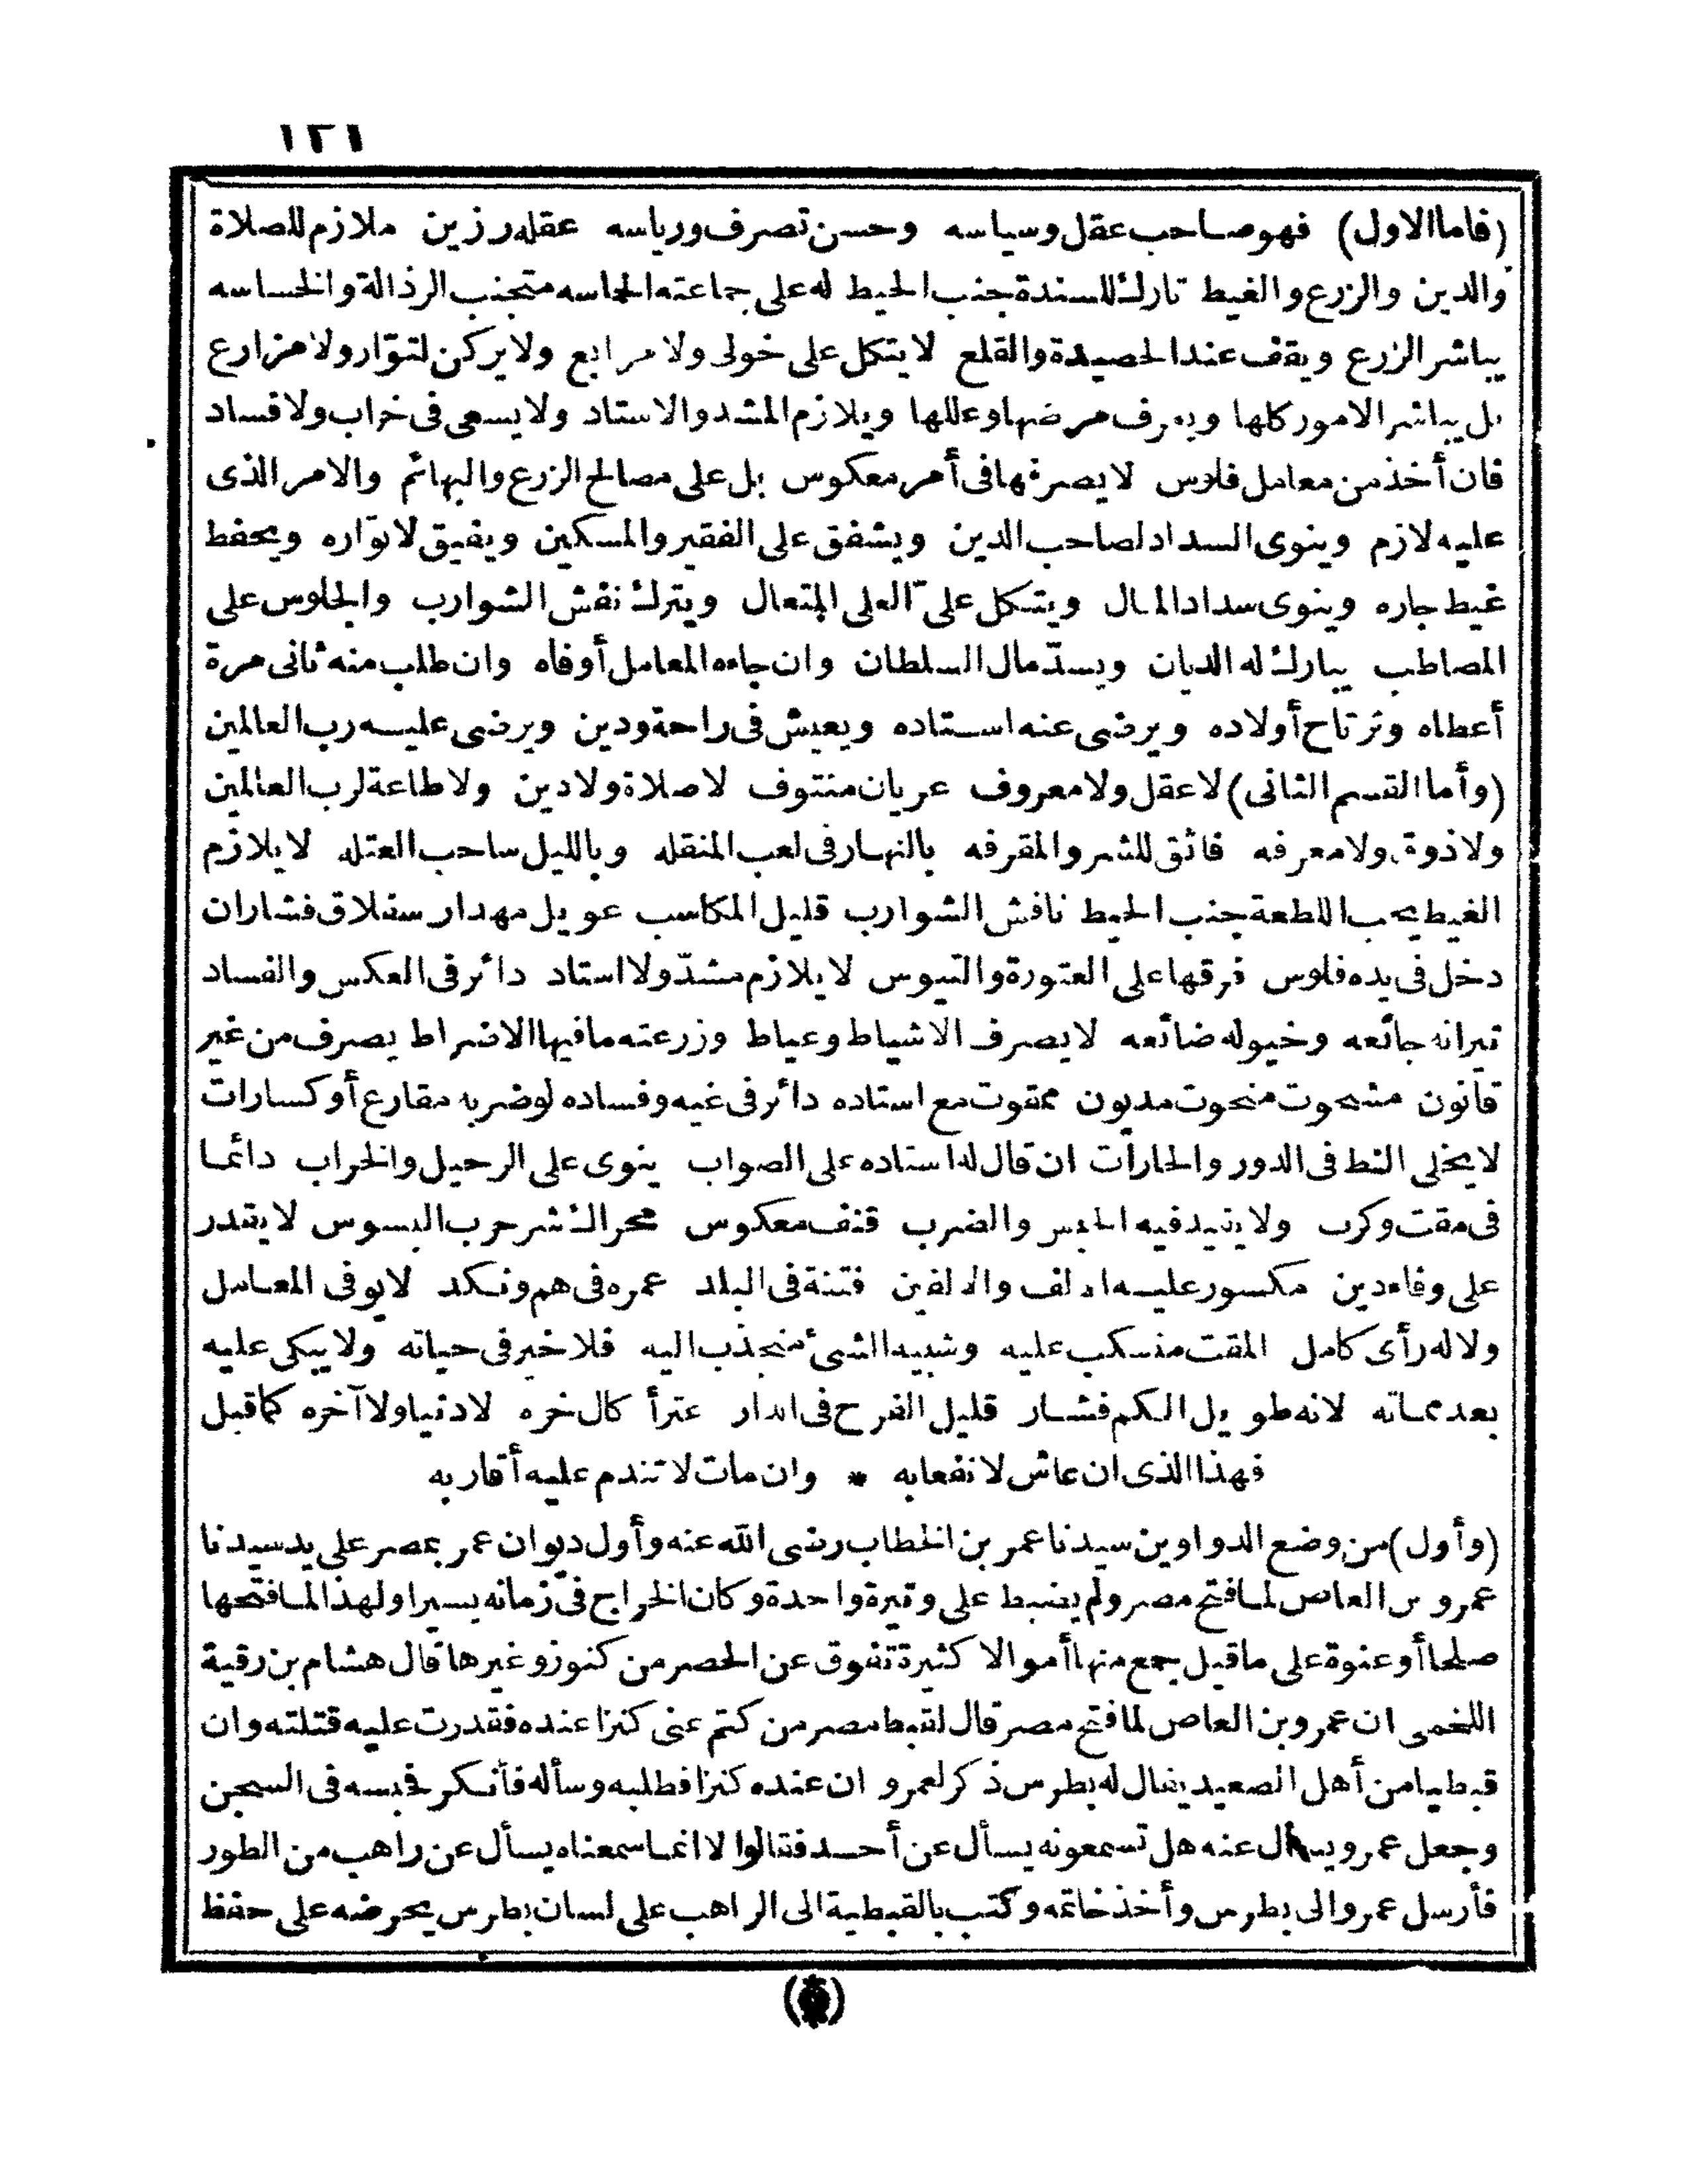 ١٢١
(فاما الاول) فهو صاحب عقل وسياسه وحسن تصرف ورياسه عقله رزين ملازم للصلاة
والدين والزرع والغيط تارك للسندة جنب الحيط له على جماعته الحماسه متجنب الرذالة والخساسه
يباشر الزرع ويقف عند الحصيدة والقلع لا يتكل على خولى ولا مرابع ولا يركن لتوّار ولا مزارع
بل يباشر الامور كلها ويعرف مرضها وعللها ويلازم المشد والاستاد ولا يسعى فى خراب ولا فساد
فان أخذ من معامل فلوس لا يصرفها فى أمر معكوس بل على مصالح الزرع والبهائم والامر الذى
عليه لازم وينوى السداد لصاحب الدين ويشفق على الفقير والمسكين ويفيق لاتوّاره ويحفظ
غيط جاره وينوى سداد المال ويتكل على العلى المتعال ويترك نفش الشوارب والجلوس على
المصاطب يبارك له الديان ويسدّ مال السلطان وان جاءه المعامل أوفاه وان طلب منه ثانى مرة
أعطاه وترتاح أولاده ويرضى عنه استاده ويعيش فى راحة ودين ويرضى عليه رب العالمين
(وأما القسم الثانى) لا عقل ولا معروف عريان منتوف لا صلاة ولا دين ولا طاعة لرب العالمين
ولا ذوة ولا معرفه فائق للشر والمقرفه بالنهار فى لعب المنقله وبالليل ساحب العتله لا يلازم
الغيط يحب اللطعة جنب الحيط نافش الشوارب قليل المكاسب عويل مهدار سقلاق فشار ان
دخل فى يده فلوس فرقها على العتورة والتيوس لا يلازم مشدّ ولا استاد دائر فى العكس والفساد
تيرانه جائعه وخيوله ضائعه لا يصرف الا شياط وعياط وزرعته ما فيها الا ضراط يصرف من غير
قانون مشحوت منحوت مديون ممقوت مع استاده دائر فى غيه وفساده لو ضربه مقارع أو كسارات
لا يخلى النط فى الدور والحارات ان قال له استاده على الصواب ينوى على الرحيل والخراب دائما
فى مقت وكرب ولا يفيد فيه الحبس والضرب قنف معكوس محراك شر حرب البسوس لا يقدر
على وفاء دين مكسور عليه الالف والالفين فتنة فى البلد عمره فى هم ونكد لا يوفى المعامل
ولا له رأى كامل المقت منسكب عليه وشبيه الشىء منجذب اليه فلا خير فى حياته ولا يبكى عليه
بعد مماته لانه طويل الكم فشار قليل الفرح فى الدار عترأ كال خره لا دنيا ولا آخره كما قيل
فهذا الذى ان عاش لا نفعا به * وان مات لا تندم عليه أقاربه
(وأول) من وضع الدواوين سيدنا عمر بن الخطاب رضى الله عنه وأول ديوان عمر بمصر على يد سيدنا
عمرو بن العاص لما فتح مصر ولم يضبط على وتيرة واحدة وكان الخراج فى زمانه يسيرا ولهذا لما فتحها
صلحا أو عنوة على ما قيل جمع منها أموالا كثيرة تفوق عن الحصر من كنوز وغيرها قال هشام بن رقية
اللخمى ان عمرو بن العاص لما فتح مصر قال لقبط مصر من كتم عنى كنزا عنده فقدرت عليه قتلته وان
قبطيا من أهل الصعيد يقال له بطرس ذكر لعمرو ان عنده كنزا فطلبه وسأله فأنكر فحبسه فى السجن
وجعل عمرو يسأل عنه هل تسمعونه يسأل عن أحد فقالوا لا انما سمعناه يسأل عن راهب من الطور
فأرسل عمرو الى بطرس وأخذ خاتمه وكتب بالقبطية الى الراهب على لسان بطرس يحرضه على حفظ